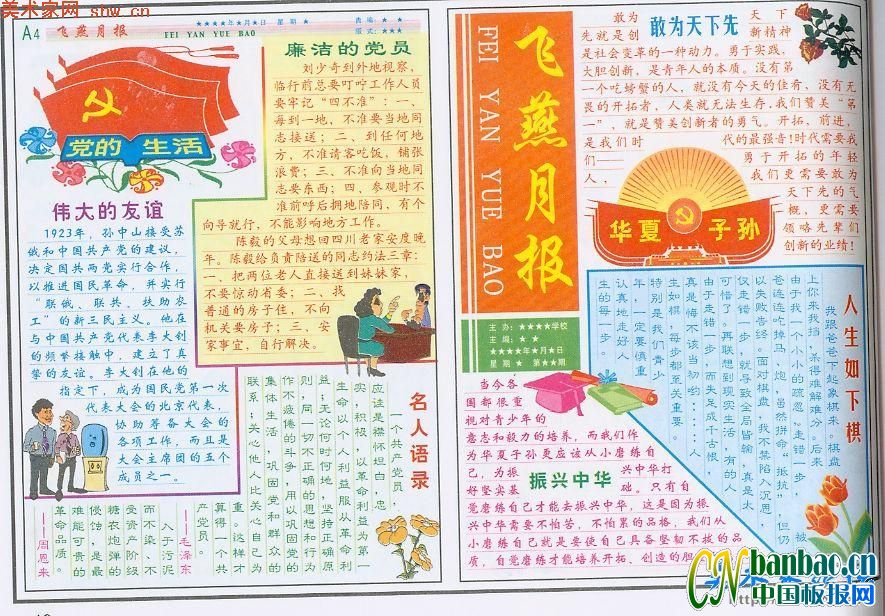 美术家网 stw.cn
A4
飞燕月报
FEI YAN YUE BAO
★★★★年★月★日 星期 ★
责编：★★
版式：★★★
党的生活
廉洁的党员
刘少奇到外地视察，
临行前总要叮咛工作人员
要牢记“四不准”：一、
每到一地，不准要当地同
志接送；二、到任何地
方，不准请客吃饭，铺张
浪费；三、不准向当地同
志要东西；四、参观时不
准前呼后拥地陪同，有个
向导就行，不能影响地方工作。
陈毅的父母想回四川老家安度晚
年。陈毅给负责陪送的同志约法三章：
一、把两位老人直接送到妹妹家，
不要惊动省委；二、找
普通的房子住，不向
机关要房子；三、安
家事宜，自行解决。
伟大的友谊
1923年，孙中山接受苏
俄和中国共产党的建议，
决定国共两党实行合作，
以推进国民革命，并实行
“联俄、联共、扶助农
工”的新三民主义。他在
与中国共产党代表李大钊
的频繁接触中，建立了真
挚的友谊。李大钊在他的
指定下，成为国民党第一次
代表大会的北京代表，
协助筹备大会的
各项工作，而且是
大会主席团的五个
成员之一。
名人语录
一个共产党员，
应该是襟怀坦白，忠
实，积极，以革命利益为第一
生命以个人利益服从革命利
益；无论何时何地，坚持正确原
则，同一切不正确的思想和行为
作不疲倦的斗争，用以巩固党的
集体生活，巩固党和群众的
联系；关心他人比关心自己为
重。这样才
算得一个共
产党员。
——毛泽东
入于污泥
而不染、不
受资产阶级
糖衣炮弹的
侵蚀，是最
难能可贵的
革命品质。
——周恩来
飞燕月报
FEI YAN YUE BAO
主办：★★★★学校
主编：★★
★★★★年★月★日
星期★ 第★★期
敢为天下先
敢为天下
先就是创新精神
是社会变革的一种动力。勇于实践，
大胆创新，是青年人的本质。没有第
一个吃螃蟹的人，就没有今天的佳肴，没有无
畏的开拓者，人类就无法生存，我们赞美“第
一”，就是赞美创新者的勇气。开拓，前进，
是我们时代的最强音！时代需要我
们——勇于开拓的年轻
人，我们更需要敢为
天下先的气
概，更需要
领略先辈们
创新的业绩！
华夏子孙
人生如下棋
我跟爸爸下起象棋来。棋盘
上你来我挡，杀得难解难分。后来
由于我一个小小的疏忽，走错一步，被
爸连连吃掉马，炮，虽然拼命“抵抗”，但仍
以失败告终。面对棋盘，我不禁陷入沉思，
仅走错一步，就导致全局皆输，真是太
可惜了。再联想到现实生活，有的人
由于走错一步，而失足成千古恨，
真是悔不该当初哟……人
生如棋，每步都至关重要。
特别是我们青少
年，一定要慎重
认真地走好人
生的每一步。
振兴中华
当今各
国都很重
视对青少年的
意志和毅力的培养，而我们作
为华夏子孙更应该从小磨练自
己，为振兴中华打
好坚实基础。只有自
觉磨练自己才能去振兴中华，这是因为振
兴中华需要不怕苦，不怕累的品格，我们从
小磨练自己就是要使自己具备坚韧不拔的品
质，自觉磨练才能培养开拓、创造的胆
CN banbao.cn
中国板报网